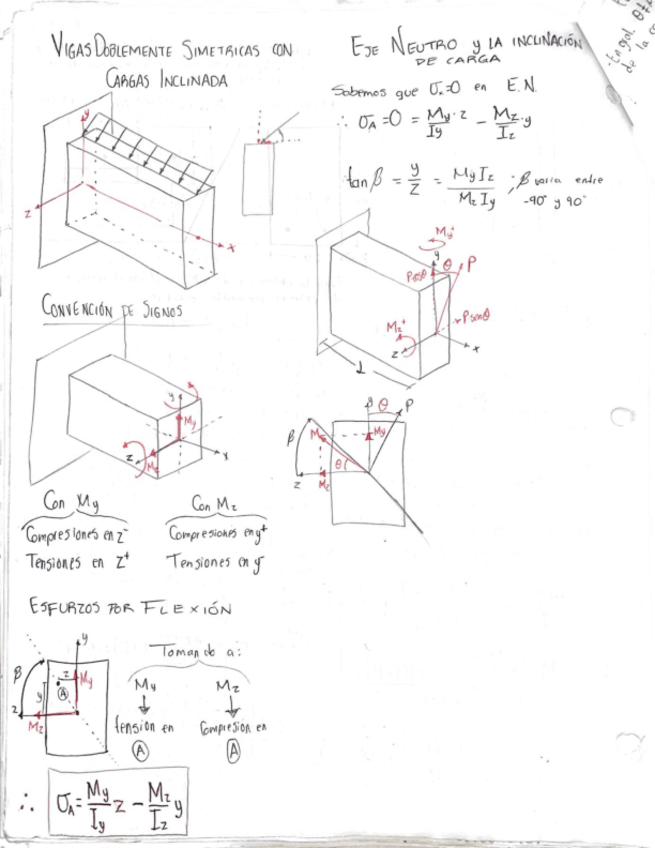 VIGAS DOBLEMENTE SIMETRICAS CON
CARGAS INCLINADA
y
z
x
CONVENCIÓN DE SIGNOS
y
My
z
Mz
x
Con My
Compresiones en z⁻
Tensiones en z⁺
Con Mz
Compresiones en y⁺
Tensiones en y⁻
ESFURZOS POR FLEXIÓN
y
β
z
My
A
y
z
Mz
Tomando a:
My
↓
tension en
A
Mz
↓
Compresión en
A
∴ σA = My/Iy z - Mz/Iz y
EJE NEUTRO Y LA INCLINACIÓN
DE CARGA
Sabemos que σx=0 en E.N.
∴ σA = 0 = My·z/Iy - Mz·y/Iz
tan β = y/z = My Iz/Mz Iy ; β varia entre
-90° y 90°
My⁺
y
θ
P
Pcosθ
Psenθ
Mz⁺
z
x
L
y
θ
P
β
M
My
θ
z
Mz
de la